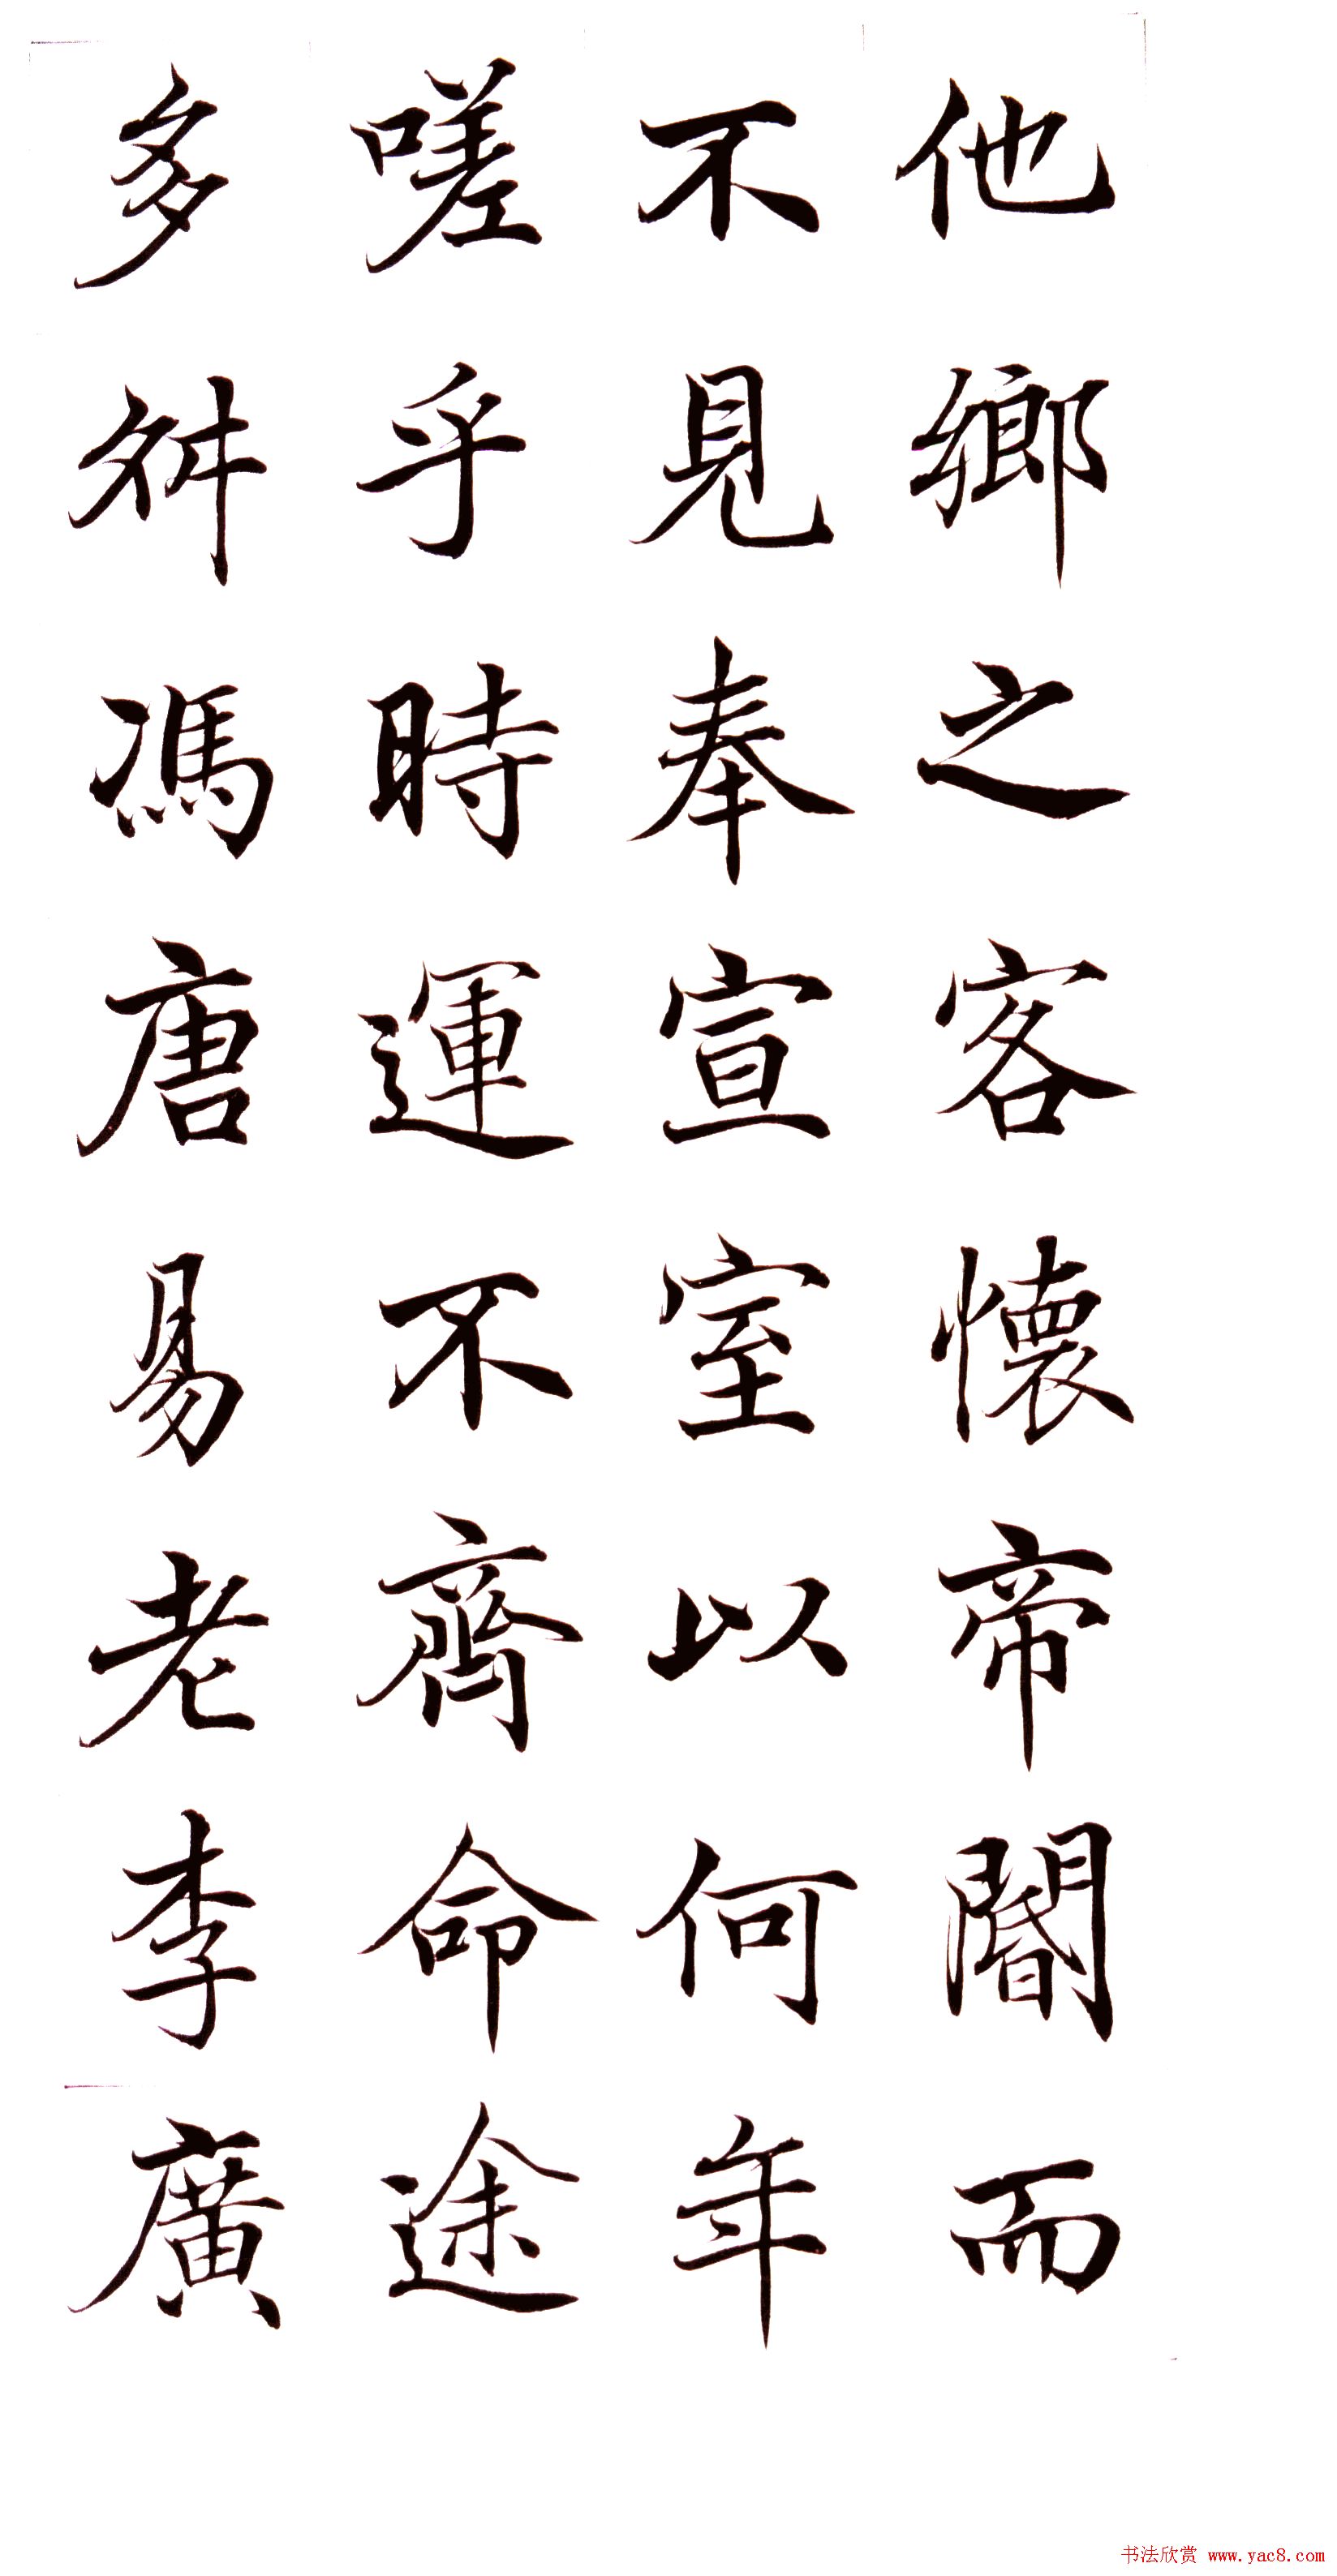 他鄉之客懷帝閽而
不見奉宣室以何年
嗟乎時運不齊命途
多舛馮唐易老李廣
书法欣赏 www.yac8.com